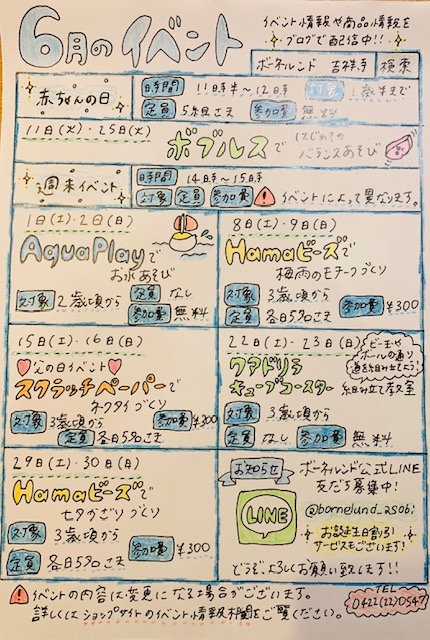 6月のイベント
イベント情報や商品情報を
ブログで配信中!!
ボーネルンド 吉祥寺 検索
赤ちゃんの日
時間 11時半〜12時 対象 1歳半まで
定員 5組さま 参加費 無料
11日(火)・25日(火)
ボブルスで はじめての
バランスあそび
週末イベント
時間 14時〜15時
対象 定員 参加費 イベントによって異なります。
1日(土)・2日(日)
AquaPlayで
お水あそび
対象 2歳頃から
定員 なし
参加費 無料
8日(土)・9日(日)
Hamaビーズで
梅雨のモチーフづくり
対象 3歳頃から
定員 各日5名さま
参加費 ¥300
15日(土)・16日(日)
父の日イベント
スクラッチペーパーで
ネクタイづくり
対象 3歳頃から
定員 各日5名さま
参加費 ¥300
22日(土)・23日(日)
ビー玉や
ボールの通り
道を組み立てよう!
クアドリラ
キューブコースター 組み立て教室
対象 3歳頃から
定員 なし 参加費 無料
29日(土)・30日(日)
Hamaビーズで
七夕かざりづくり
対象 3歳頃から
定員 各日5名さま
参加費 ¥300
お知らせ
ボーネルンド公式LINE
友だち募集中!
LINE
お誕生日割引
サービスもございます!
どうぞ、よろしくお願い致します!!
イベントの内容は変更になる場合がございます。
詳しくはショップサイトのイベント情報欄をご覧ください。
TEL
0422(22)0547